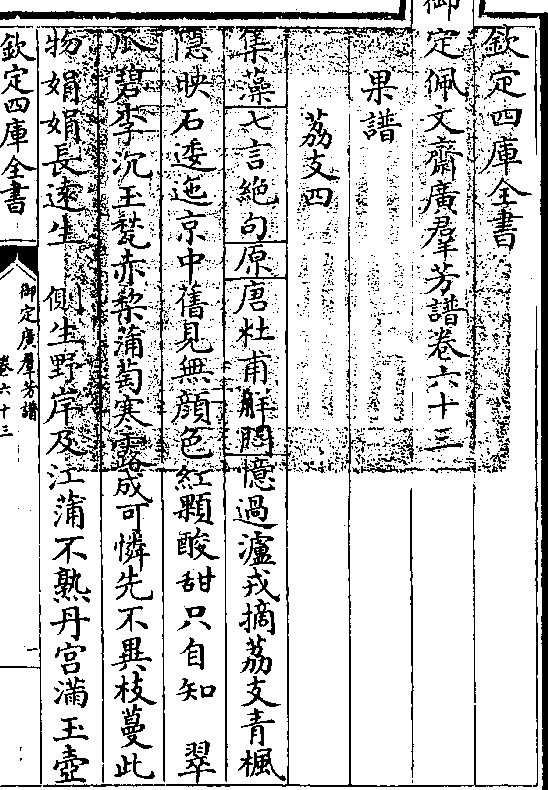 欽定四庫全書
御定佩文齋廣羣芳譜卷六十三
果譜
荔支四
集藻七言絕句原唐杜甫解悶憶過瀘戎摘荔支青楓
隱映石逶迤京中舊見無顏色紅顆酸甜只自知 翠
瓜碧李沉玉甃赤棃蒲萄寒露成可憐先不異枝蔓此
物娟娟長遠生 側生野岸及江蒲不熟丹宮滿玉壺
欽定四庫全書
御定廣羣芳譜
卷六十三
一